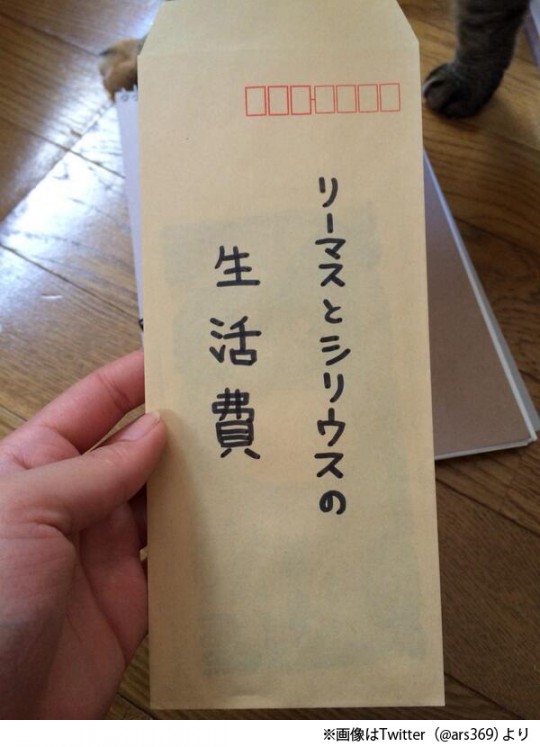 リーマスとシリウスの
生活費
※画像はTwitter（@ars369）より